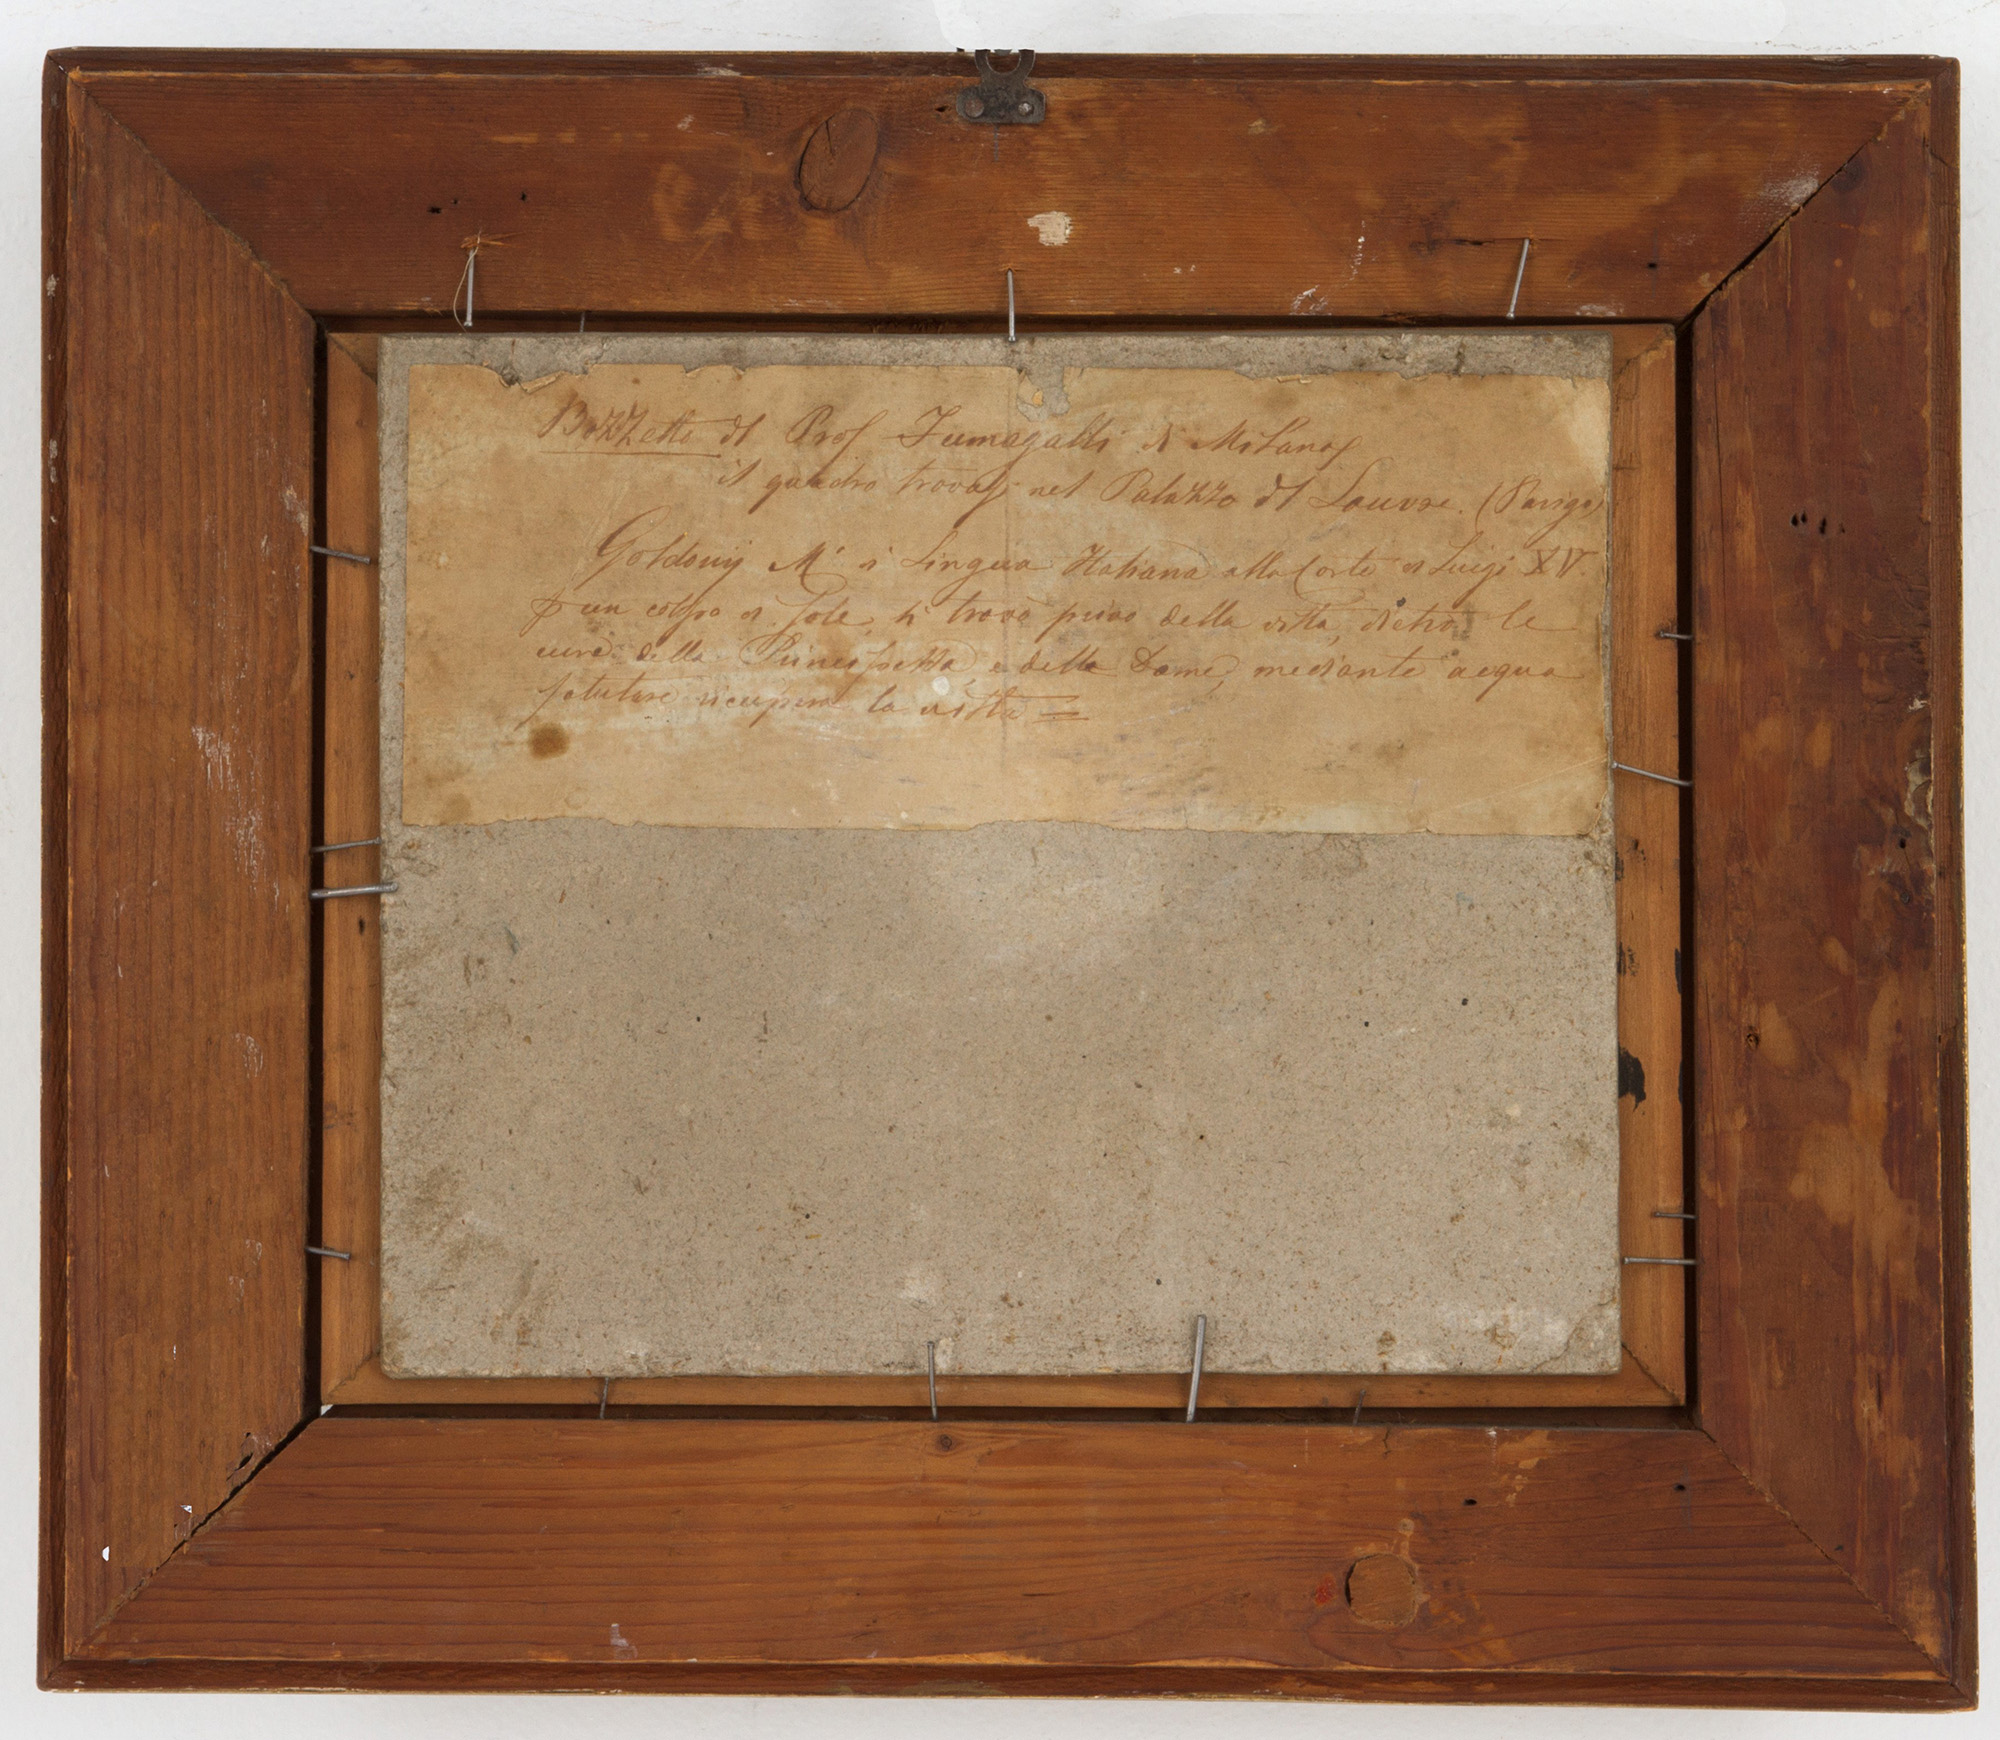 Bozzetto dl Prof Fumagalli di Milano
il quadro trovasi nel Palazzo dl Louvre. (Parigi)
Goldonij M.º di Lingua Italiana alla Corte di Luigi XV.
p un colpo di Sole, si trovò privo della vista, dietro le
cure della Principessa, e delle Dame, mediante acqua
salutare ricuperò la vista =